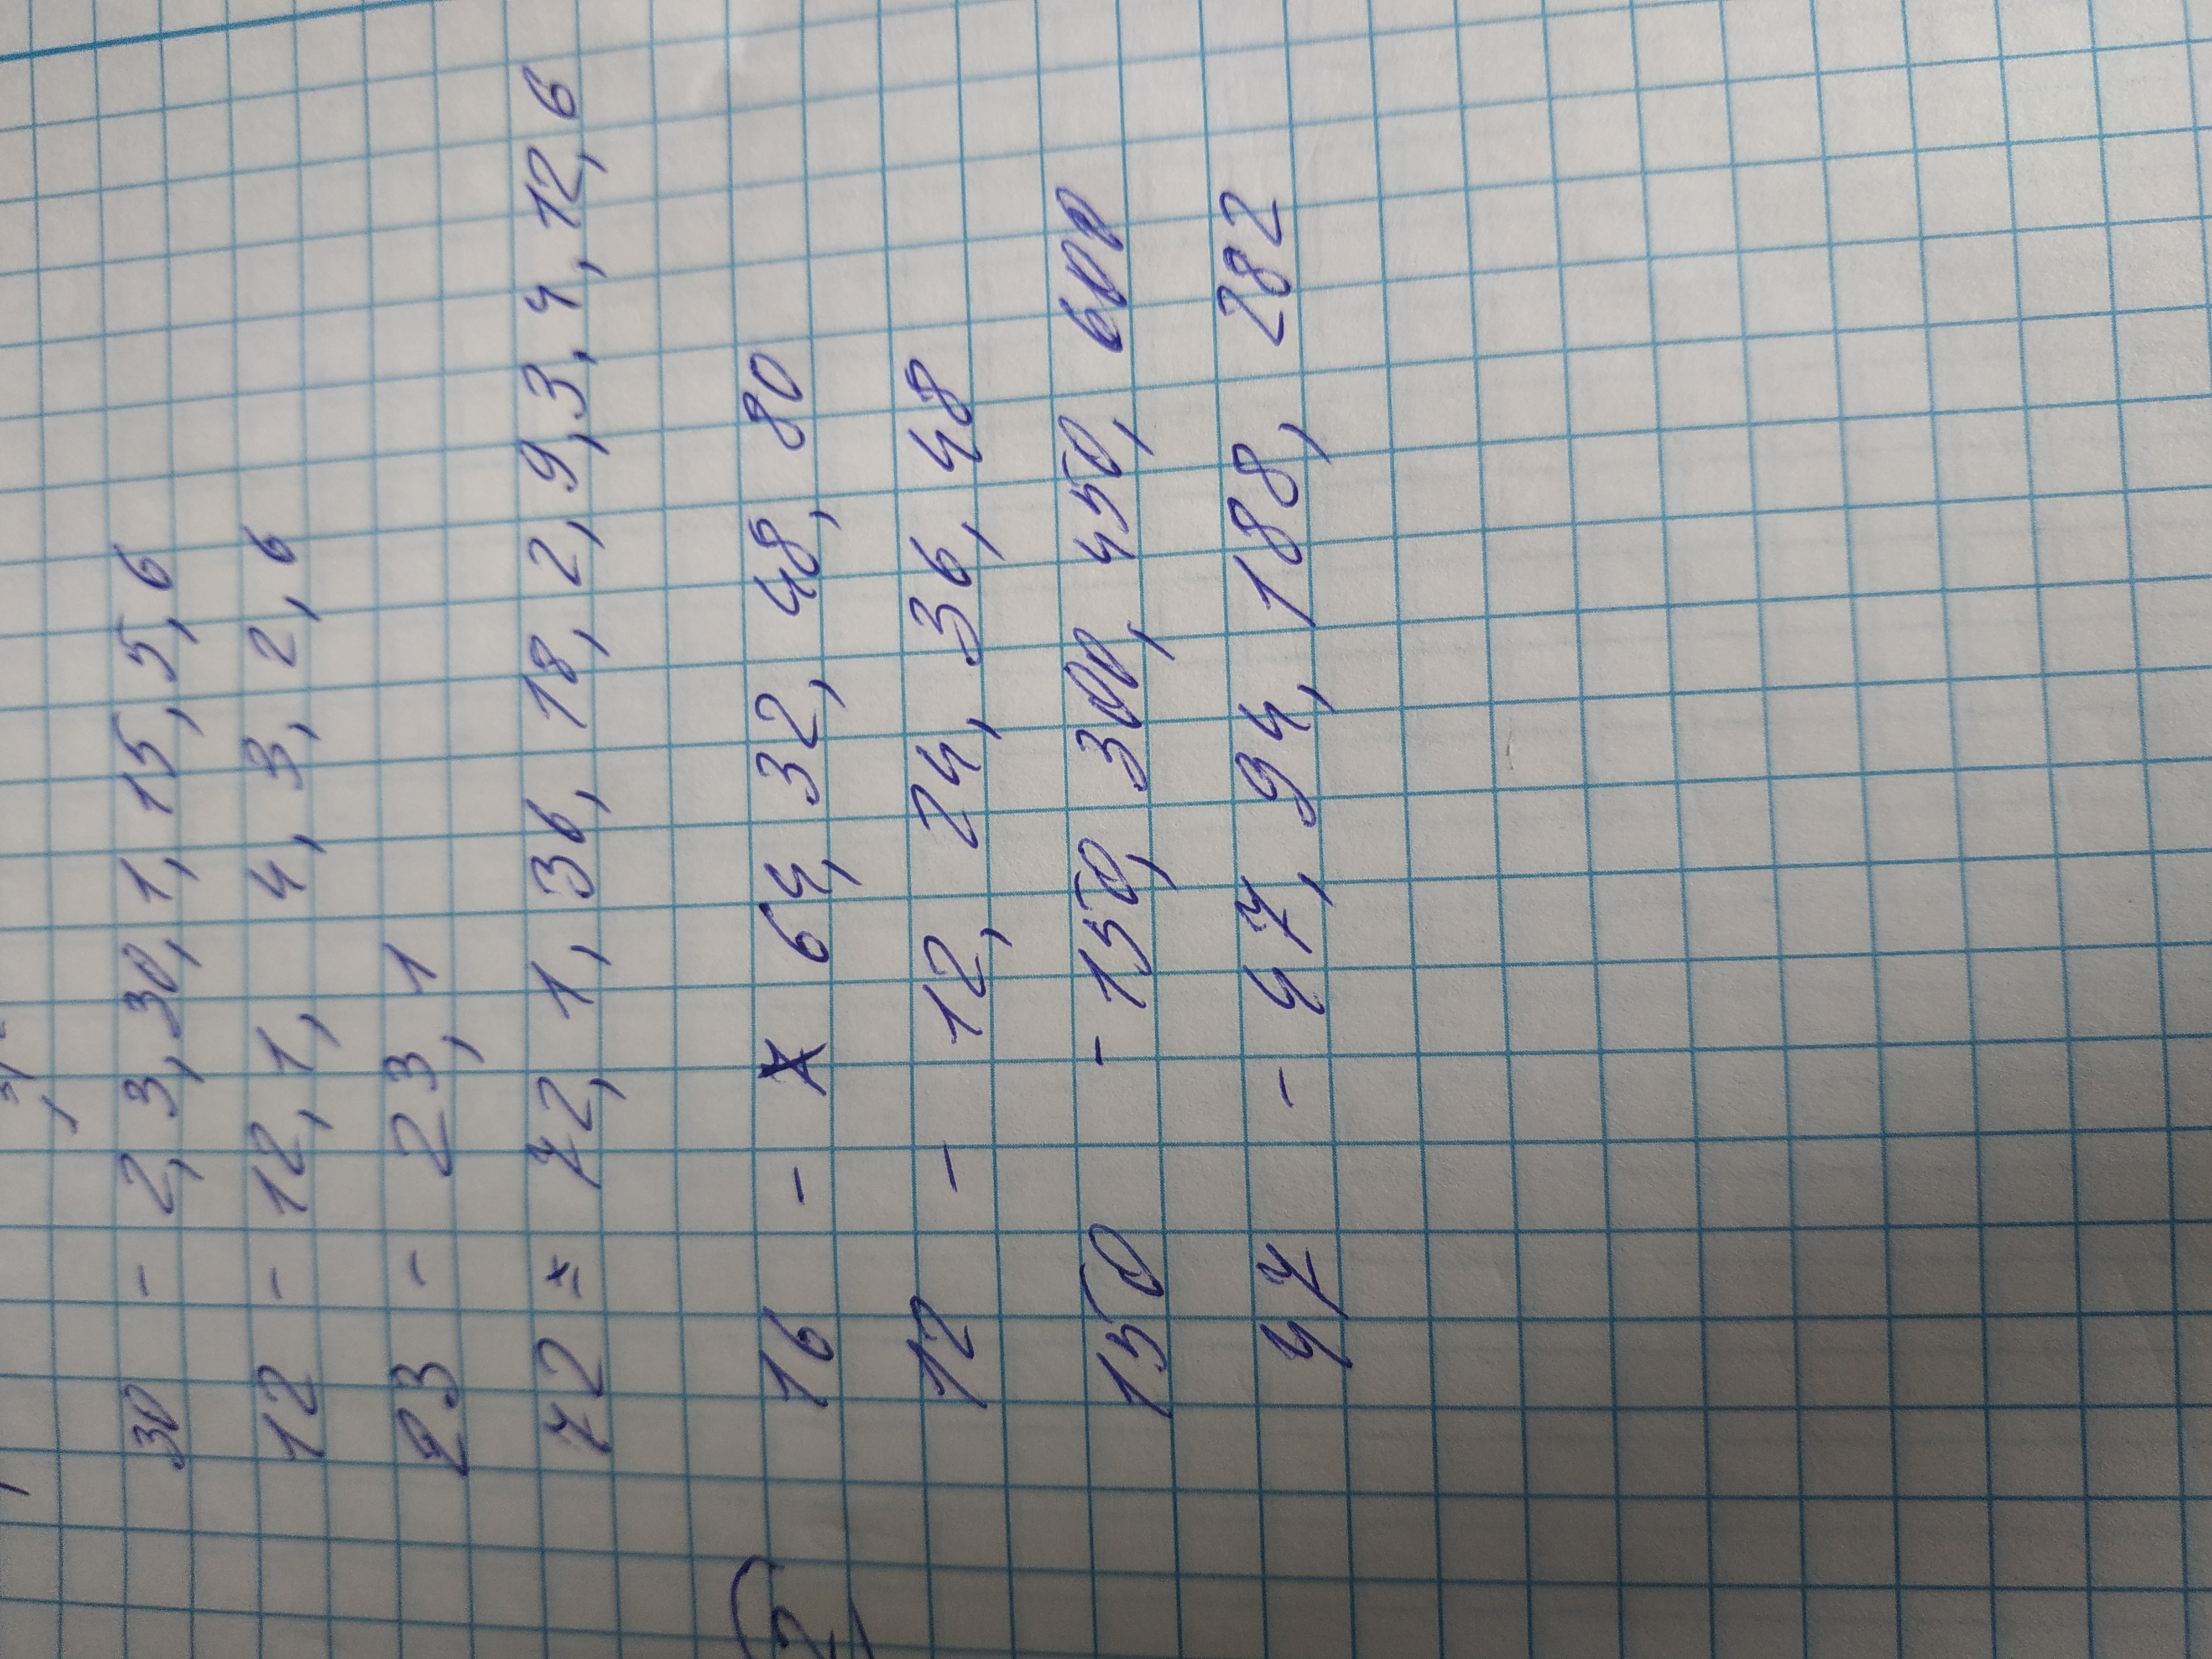 30 - 2, 3, 30, 1, 15, 5, 6
12 - 12, 1, 4, 3, 2, 6
23 - 23, 1
72 = 72, 1, 36, 18, 2, 9, 3, 4, 12, 6
2) 16 - 64, 32, 48, 80
12 - 12, 24, 36, 48
150 - 150, 300, 450, 600
47 - 47, 94, 188, 282